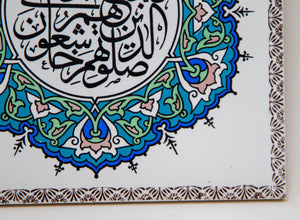 الذين هم
صلاتهم خاشعون